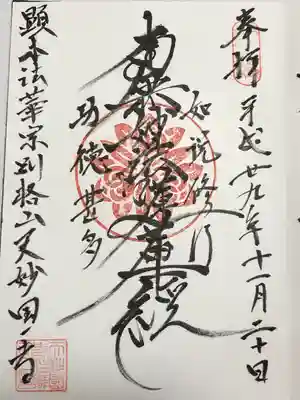 奉拝 平成廿九年十一月二十日
如説修行
南無妙法蓮華経
功徳甚多
顕本法華宗別格山天妙国寺